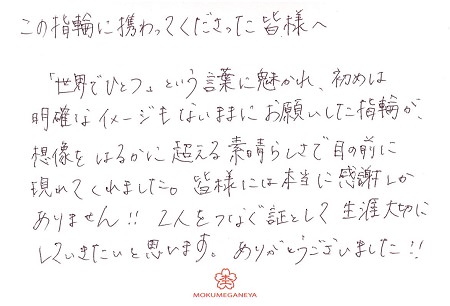 この指輪に携わってくださった皆様へ
「世界でひとつ」という言葉に魅かれ、初めは
明確なイメージもないままにお願いした指輪が、
想像をはるかに超える素晴らしさで目の前に
現れてくれました。皆様には本当に感謝しか
ありません!! 2人をつなぐ証として生涯大切に
していきたいと思います。ありがとうございました!!
MOKUMEGANEYA